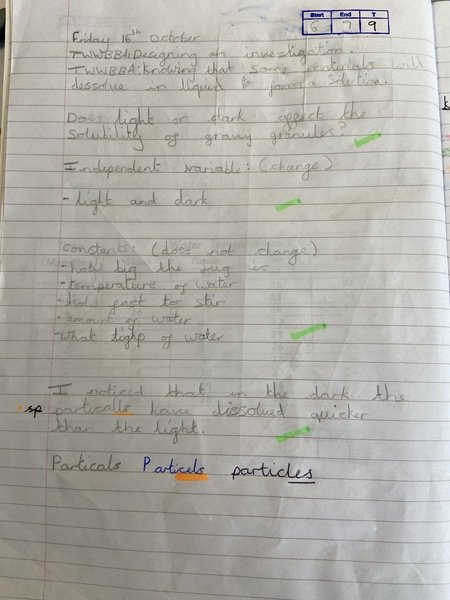 Start End T
6 7 9
Friday 16th October
TWWBBA: Designing an investigation.
TWWBBA: Knowing that some materials will
dessolve in liquid to form a solution.
Does light or dark affect the
solutility of gravy granules?
Independent variable: (change)
- light and dark
constants: (does not change)
- how big the jug is
- temperature of water
- How fast to stir
- amount of water
- what tighp of water
I noticed that in the dark the
sp particalls have dissolved quicker
than the light.
Particals Particels particles